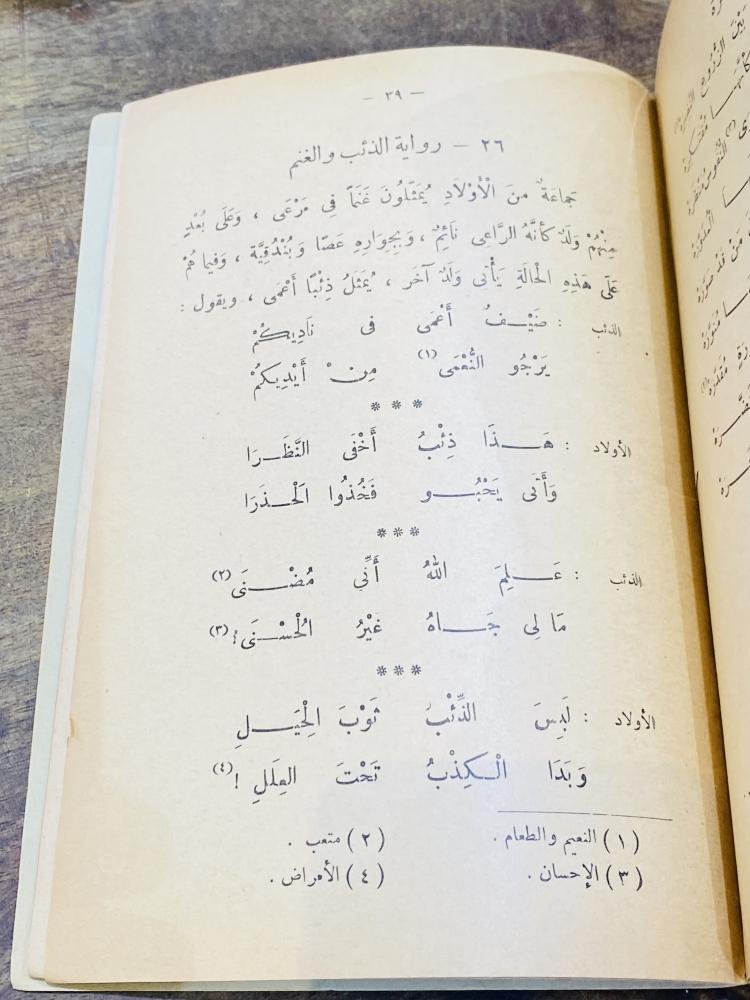 — ٣٩ —
٢٦ — رواية الذئب والغنم
جَمَاعَةٌ مِنَ الْأَوْلَادِ يُمَثِّلُونَ غَنَمًا فِى مَرْعَى ، وَعَلَى بُعْدٍ
مِنْهُمْ وَلَدٌ كَأَنَّهُ الرَّاعِى نَائِمٌ ، وَبِجِوَارِهِ عَصًا وَبُنْدُقِيَّة ، وَفِيمَا هُمْ
عَلَى هَذِهِ الْحَالَةِ يَأْتِى وَلَدٌ آخَر ، يُمَثِّلُ ذِئْبًا أَعْمَى ، ويقول :
الذئب : ضَيْفٌ أَعْمَى فِى نَادِيكُمْ
يَرْجُو النُّعْمَى (١) مِنْ أَيْدِيكُمْ
* * *
الأولاد : هَذَا ذِئْبٌ أَخْفَى النَّظَرَا
وَأَتَى يَحْبُو فَخُذُوا الْحَذَرَا
* * *
الذئب : عَلِمَ اللهُ أَنِّى مُضْنَى (٢)
مَا لِى جَاهُ غَيْرُ الْحُسْنَى ؛ (٣)
* * *
الأولاد : لَبِسَ الذِّئْبُ ثَوْبَ الْحِيَلِ
وَبَدَا الْكِذْبُ تَحْتَ العِلَلِ ! (٤)
( ١ ) النعيم والطعام . ( ٢ ) متعب .
( ٣ ) الإحسان . ( ٤ ) الأمراض .